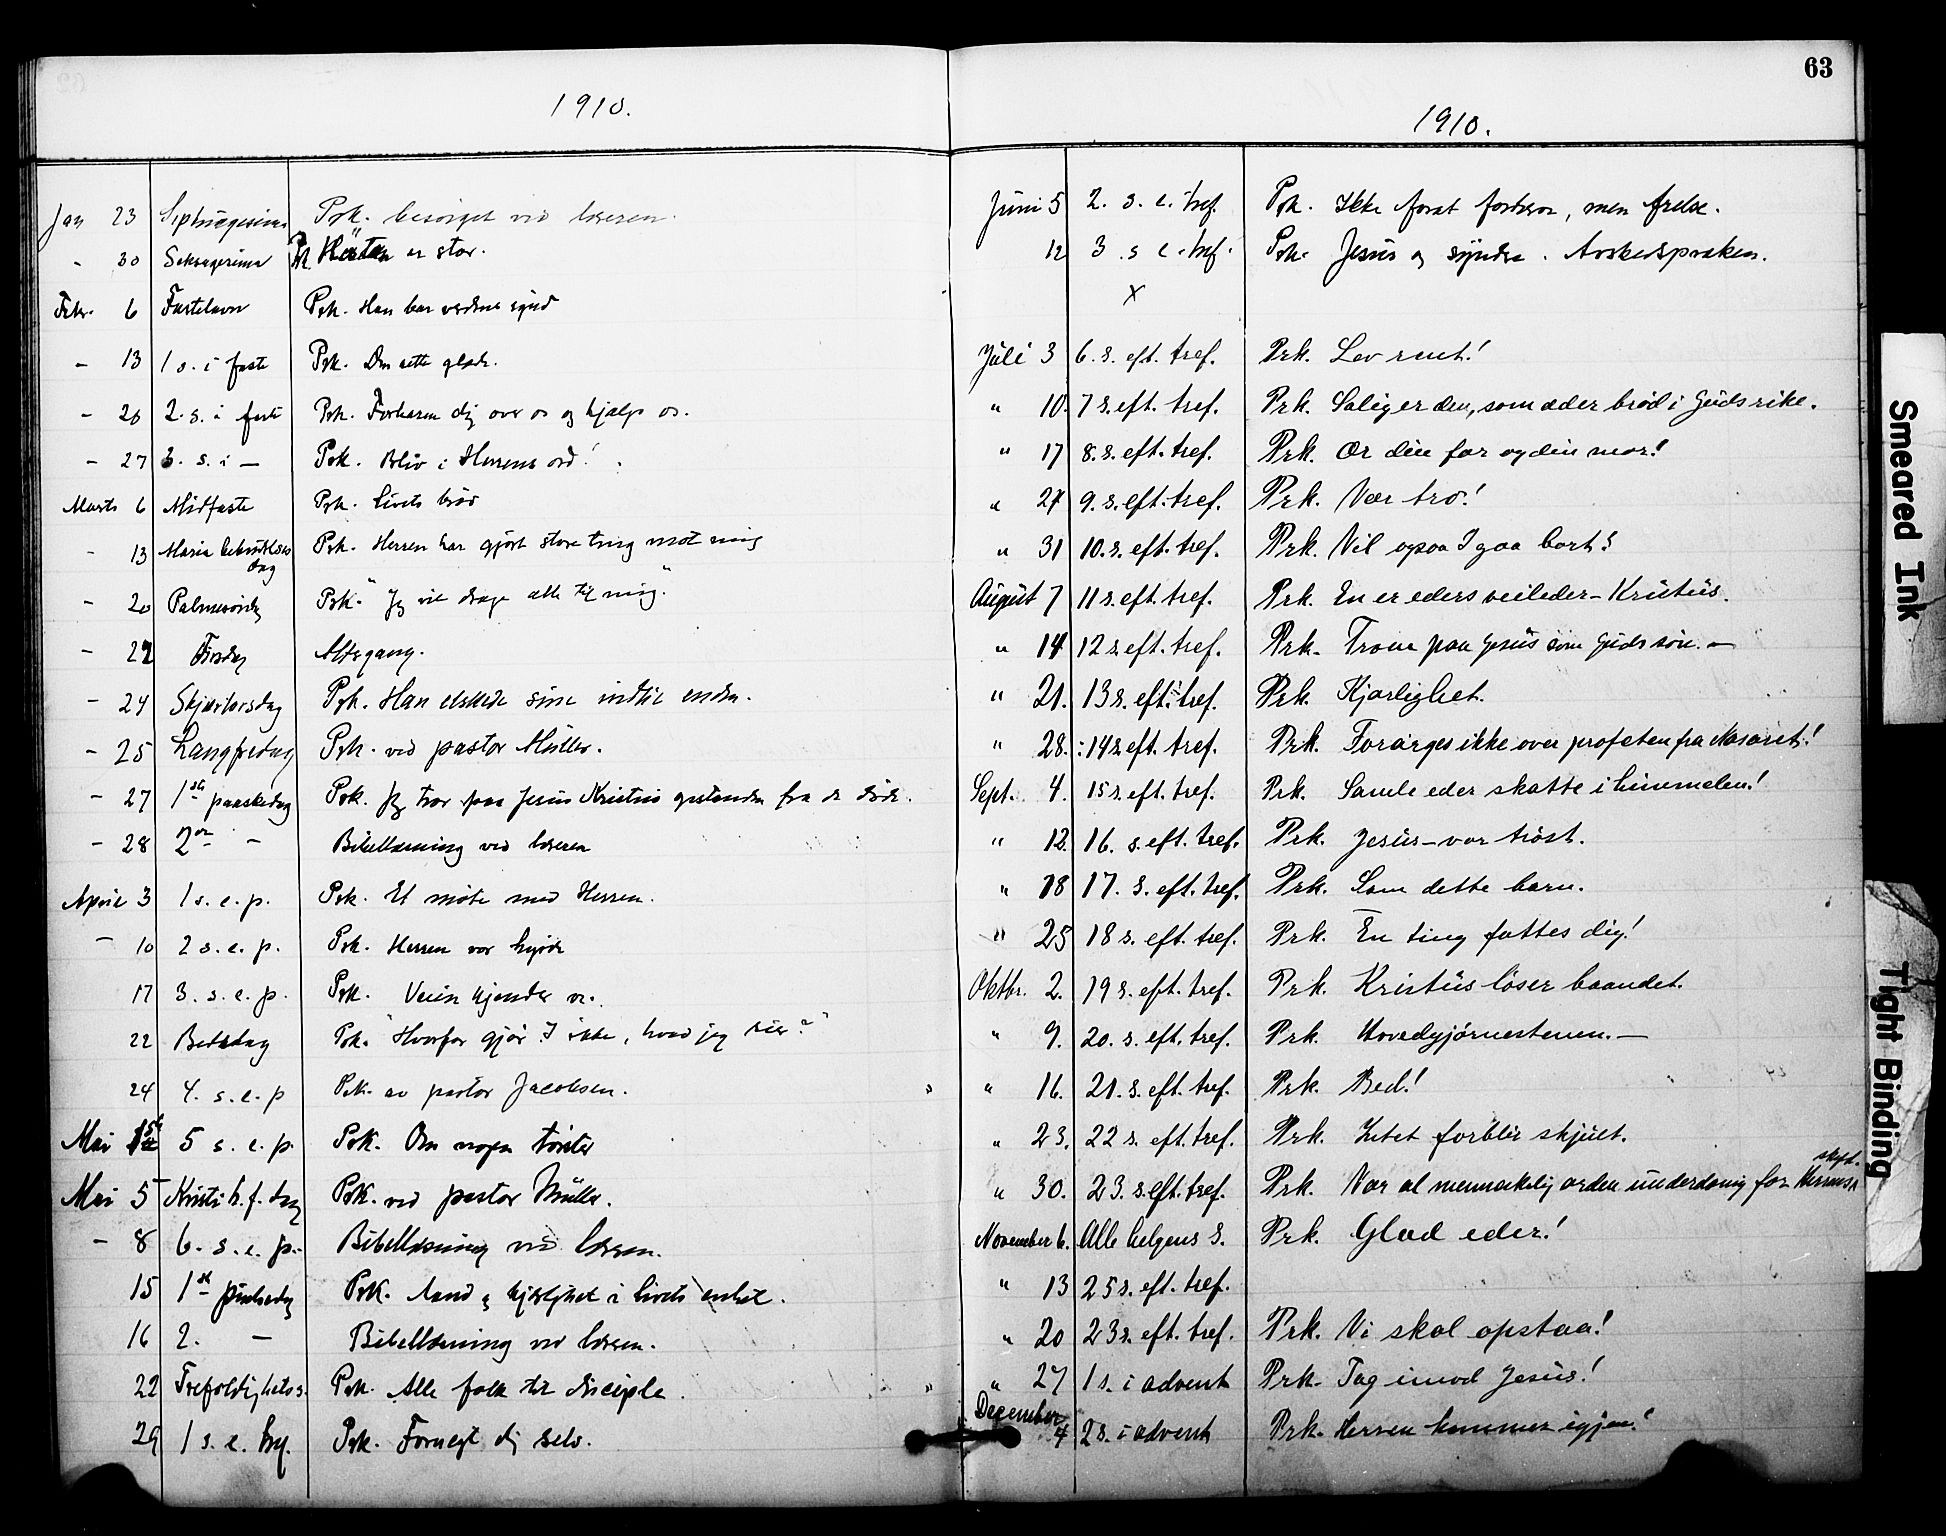 63
1910.
Jan 23 Septuagesima Prk. besörget ved læreren.
- 30 Seksagesima Prk. Høsten er stor.
Febr. 6 Fastelavn Prk. Han bar verdens synd
- 13 1 s. i faste Prk. Den rette glæde.
- 20 2. s. i faste Prk. Forbarm dig over os og hjælp os.
- 27 3. s. i — Prk. Bliv i Herrens ord!
Marts 6 Midfaste Prk. Livets brød
- 13 Maria bebudelses dag Prk. Herren har gjort store ting mot mig
- 20 Palmesøndag Prk. "Jeg vil drage alle til mig."
- 22 Tirsdag Altergang.
- 24 Skjærtorsdag Prk. Han elskede sine indtil enden.
- 25 Langfredag Prk. ved pastor Müller.
- 27 1ste paaskedag Prk. Jeg tror paa Jesus Kristus opstanden fra de døde.
- 28 2den — Bibellæsning ved læreren
April 3 1 s. e. p. Prk. Et møte med Herren.
- 10 2 s. e. p. Prk. Herren vor hyrde
17 3. s. e. p. Prk. Veien kjender vi.
22 Bededag Prk. "Hvorfor gjør I ikke, hvad jeg sier?"
24 4. s. e. p Prk. av pastor Jacobsen.
Mai 1ste 5 s. e. p. Prk. Om nogen tørster
Mai 5 Kristi h. f. dag Prk. ved pastor Müller.
- 8 6. s. e. p. Bibellæsning ved læreren.
15 1ste pinsedag Prk. Aand og kjærlighet i livets enhet.
16 2. — Bibellæsning ved læreren.
22 Trefoldighets s. Prk. Alle folk til disciple.
29 1 s. e. tref. Prk. Fornegt dig selv.
1910.
Juni 5 2. s. e. tref. Prk. Ikke forst fordærve, men frelse.
12 3. s. e. tref. Prk. Jesus og syndere. Avskedspræken.
X
Juli 3 6. s. eft. tref. Prk. Lev rent!
" 10. 7 s. eft. tref. Prk. Salig er den, som æder brød i Guds rike.
" 17 8. s. eft. tref. Prk. Ær din far og din mor!
" 24 9. s. eft. tref. Prk. Vær tro!
" 31 10. s. eft. tref. Prk. Vil ogsaa I gaa bort?
August 7 11 s. eft. tref. Prk. En er eders veileder - Kristus.
" 14 12 s. eft. tref. Prk. Troen paa Jesus som Guds søn. —
" 21. 13 s. eft. tref. Prk. Kjærlighet.
" 28. 14 s. eft. tref. Prk. Forarges ikke over profeten fra Nasaret!
Sept. 4. 15 s. eft. tref. Prk. Samle eder skatte i himmelen!
" 12. 16. s. eft. tref. Prk. Jesus - vor trøst.
" 18 17. s. eft. tref. Prk. Som dette barn.
" 25 18 s. eft. tref. Prk. En ting fattes dig!
Oktbr. 2. 19 s. eft. tref. Prk. Kristus løser baandet.
" 9. 20. s. eft. tref. Prk. Hovedhjørnestenen. —
" 16. 21. s. eft. tref. Prk. Bed!
" 23. 22 s. eft. tref. Prk. Intet forblir skjult.
" 30. 23. s. eft. tref. Prk. Vær al menneskelig orden underdanig for Herrens skyld.
November 6. Alle helgens s. Prk. Glæd eder!
" 13 25 s. eft. tref.
" 20 23 s. eft. tref. Prk. Vi skal opstaa!
" 27 1 s. i advent Prk. Tag imod Jesus!
December 4 2 s. i advent Prk. Herren kommer igjen!
Smeared Ink
Tight Binding